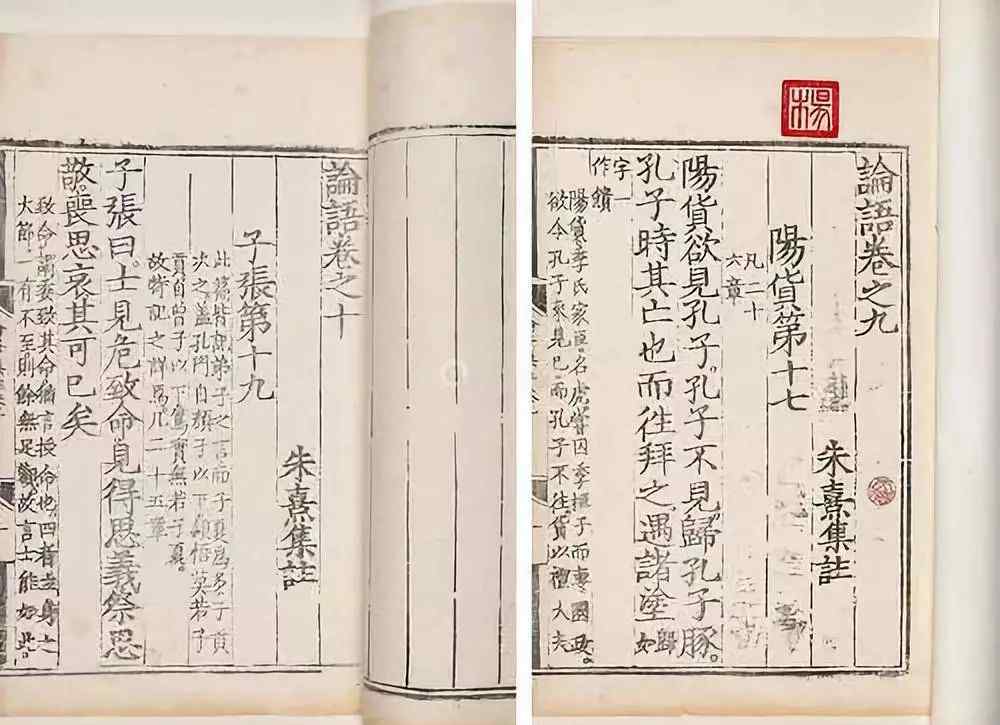 楊
論語卷之九
朱熹集註
陽貨第十七
凡二十
六章
陽貨欲見孔子。孔子不見。歸孔子豚。
孔子時其亡也而往拜之遇諸塗
歸
如
字一
作饋
陽貨季氏家臣。名虎嘗因季桓子而專國政。
欲令孔子來見已。而孔子不往。貨以禮大夫
論語卷之十
朱熹集註
子張第十九
此篇皆記弟子之言而子夏為多子貢
次之蓋孔門自顏子以下穎悟莫若子
貢自曾子以下篤實無若子夏。
故特記之詳焉凡二十五章
子張曰。士見危致命見得思義祭思
敬。喪思哀其可已矣
致命謂委致其命猶言授命也四者立身之
大節。一有不至則餘無足觀故言士能如此。